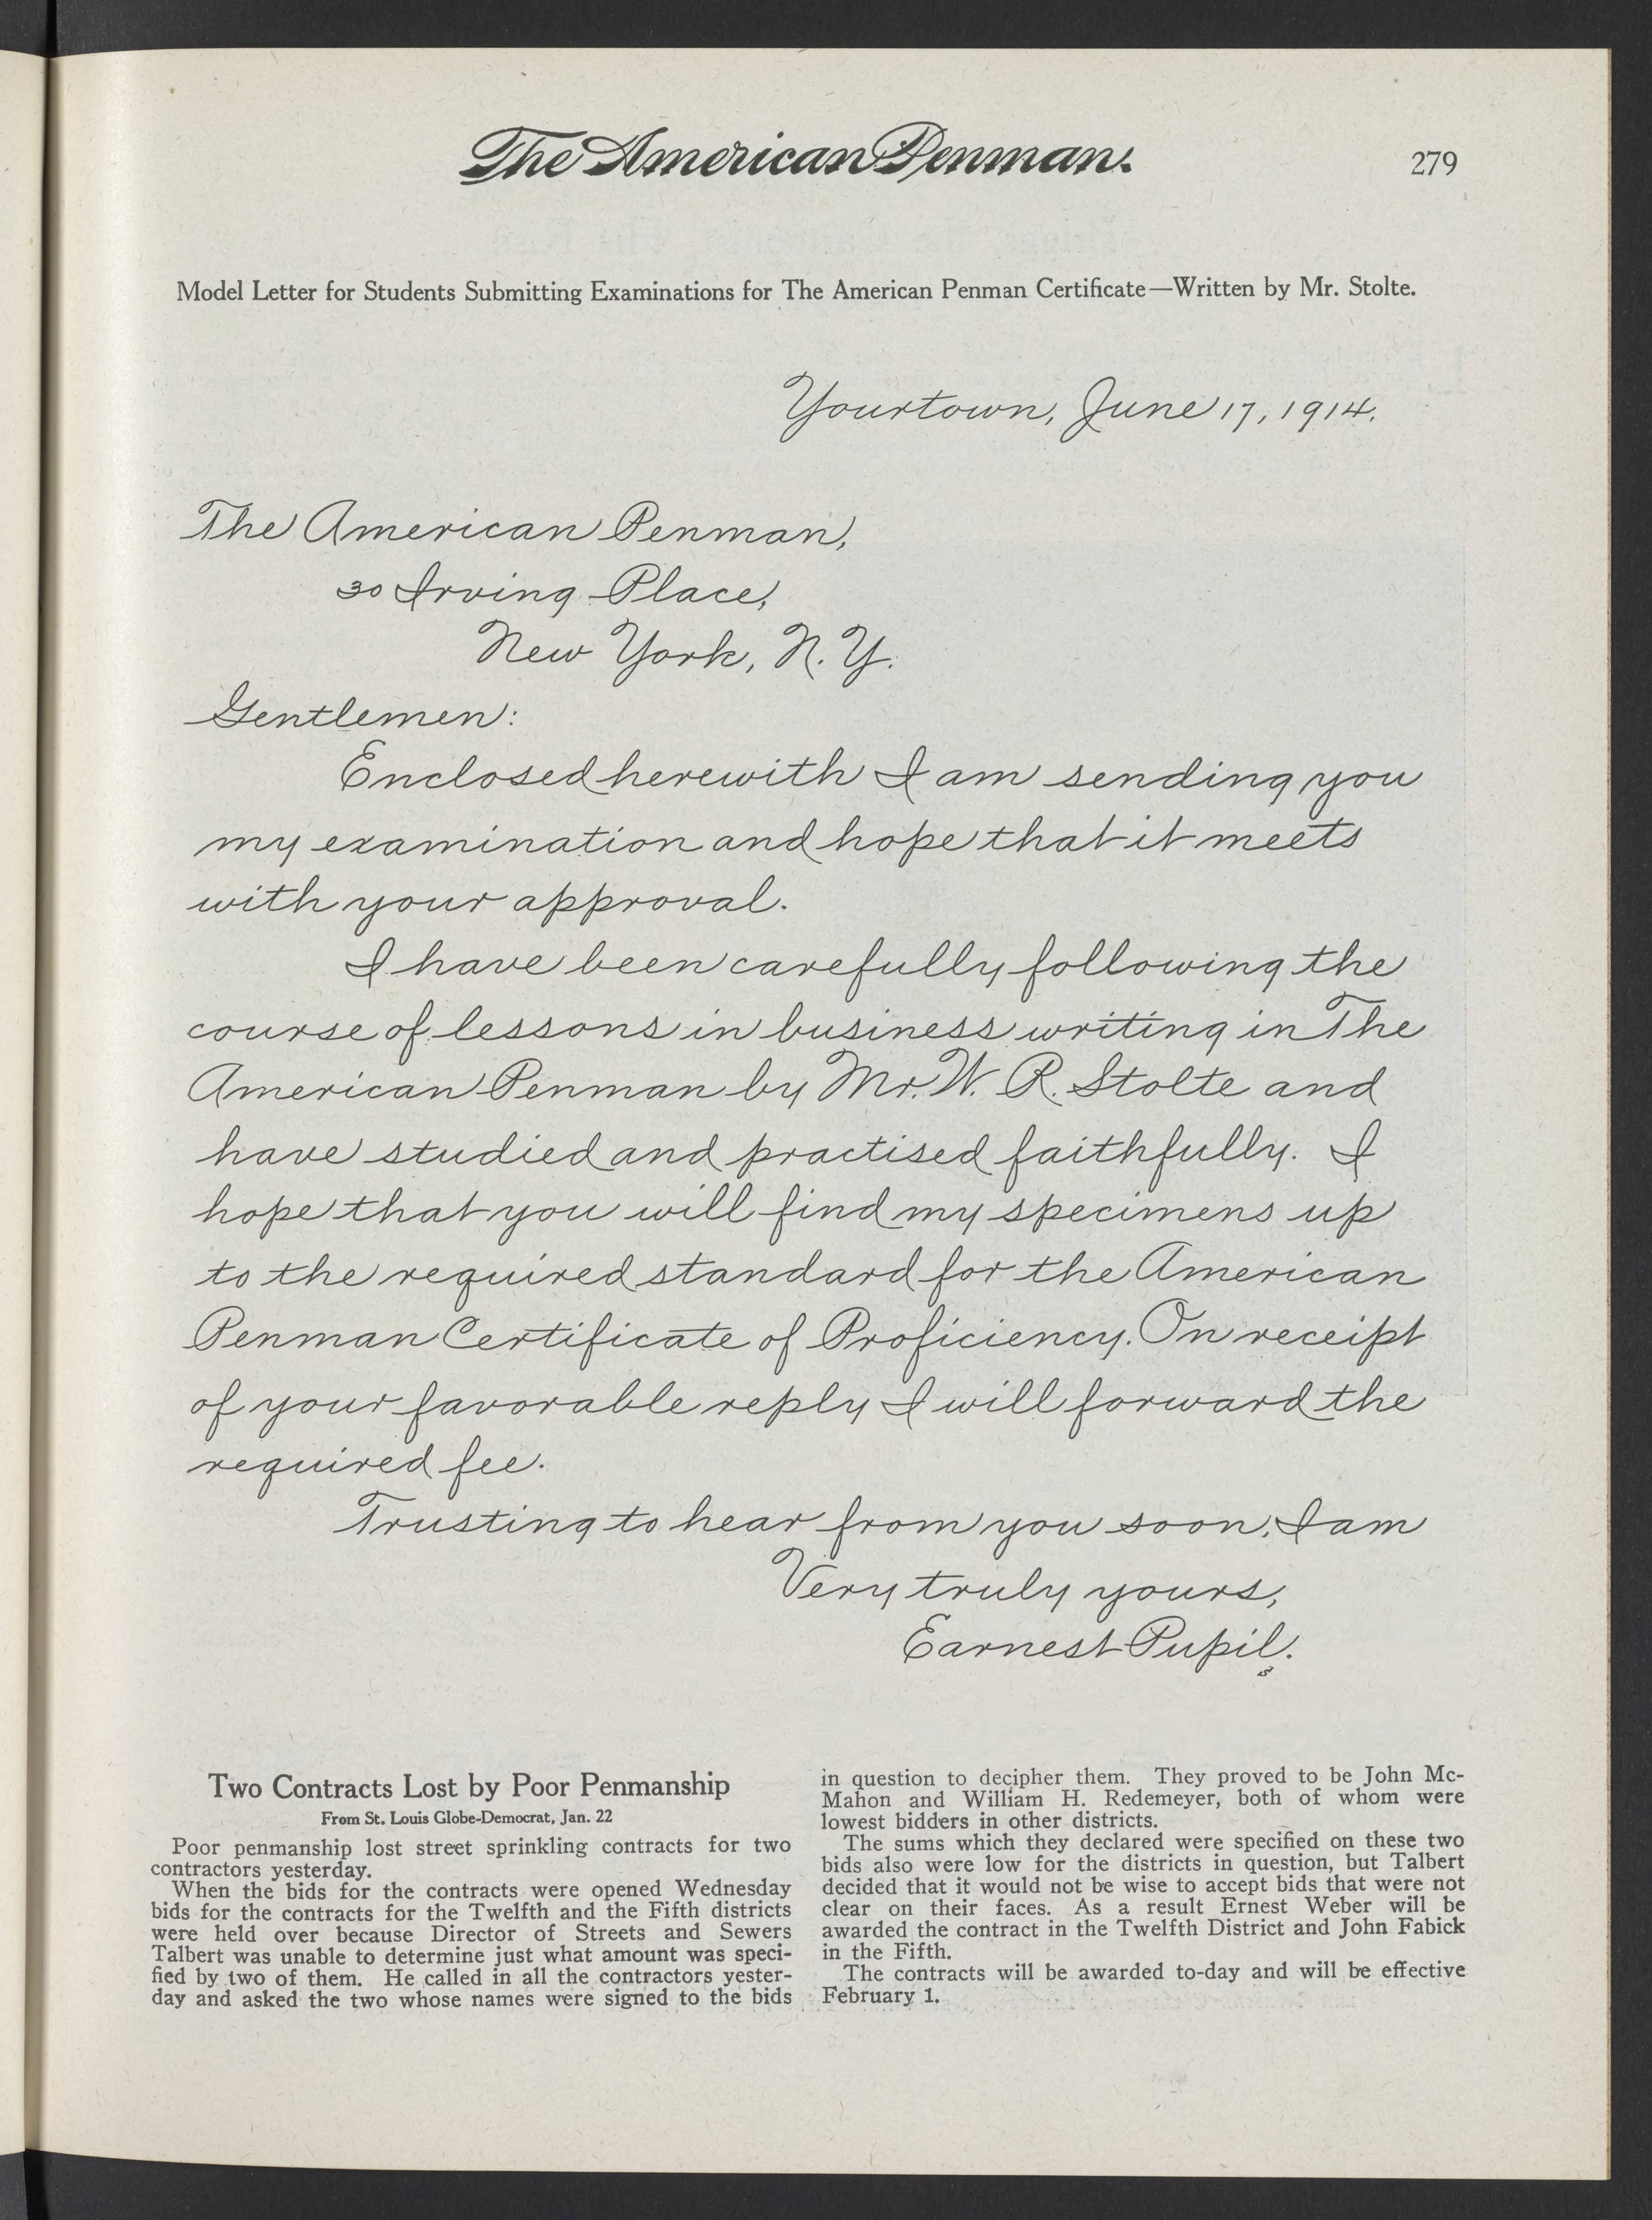 The American Penman.
279
Model Letter for Students Submitting Examinations for The American Penman Certificate—Written by Mr. Stolte.
Yourtown, June 17, 1914.
The American Penman,
30 Irving Place,
New York, N. Y.
Gentlemen:
Enclosed herewith I am sending you
my examination and hope that it meets
with your approval.
I have been carefully following the
course of lessons in business writing in The
American Penman by Mr. W. R. Stolte and
have studied and practised faithfully. I
hope that you will find my specimens up
to the required standard for the American
Penman Certificate of Proficiency. On receipt
of your favorable reply I will forward the
required fee.
Trusting to hear from you soon, I am
Very truly yours,
Earnest Pupil.
Two Contracts Lost by Poor Penmanship
From St. Louis Globe-Democrat, Jan. 22
Poor penmanship lost street sprinkling contracts for two
contractors yesterday.
When the bids for the contracts were opened Wednesday
bids for the contracts for the Twelfth and the Fifth districts
were held over because Director of Streets and Sewers
Talbert was unable to determine just what amount was speci-
fied by two of them. He called in all the contractors yester-
day and asked the two whose names were signed to the bids
in question to decipher them. They proved to be John Mc-
Mahon and William H. Redemeyer, both of whom were
lowest bidders in other districts.
The sums which they declared were specified on these two
bids also were low for the districts in question, but Talbert
decided that it would not be wise to accept bids that were not
clear on their faces. As a result Ernest Weber will be
awarded the contract in the Twelfth District and John Fabick
in the Fifth.
The contracts will be awarded to-day and will be effective
February 1.